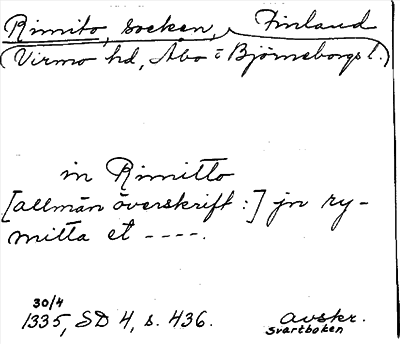 Rimito, socken, Finland
(Virmo hd, Åbo o Björneborgs l.)
in Rimitto
[allmän överskrift:] jn ry-
mitta et ----.
30/4
1335, SD 4, s. 436.
avskr.
Svartboken